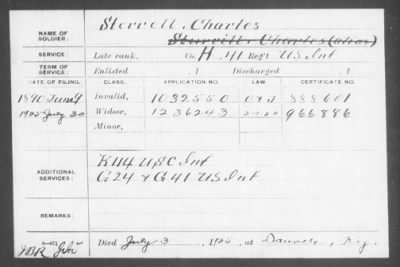 Sterrell, Charles
NAME OF SOLDIER:
Sterrill, Charles (alias)
SERVICE: Late rank, Co. H, 41 Reg't US Inf
TERM OF SERVICE: Enlisted , 1 Discharged , 1
DATE OF FILING. CLASS. APPLICATION NO. LAW. CERTIFICATE NO.
1890 June 9 Invalid, 1032550 888601
1920 July 30 Widow, 1236243 966886
Minor,
ADDITIONAL SERVICES:
K 114 USC Inf
G 24 & G 41 US Inf
REMARKS:
Died July 3, 1920, at Danville, Ky.